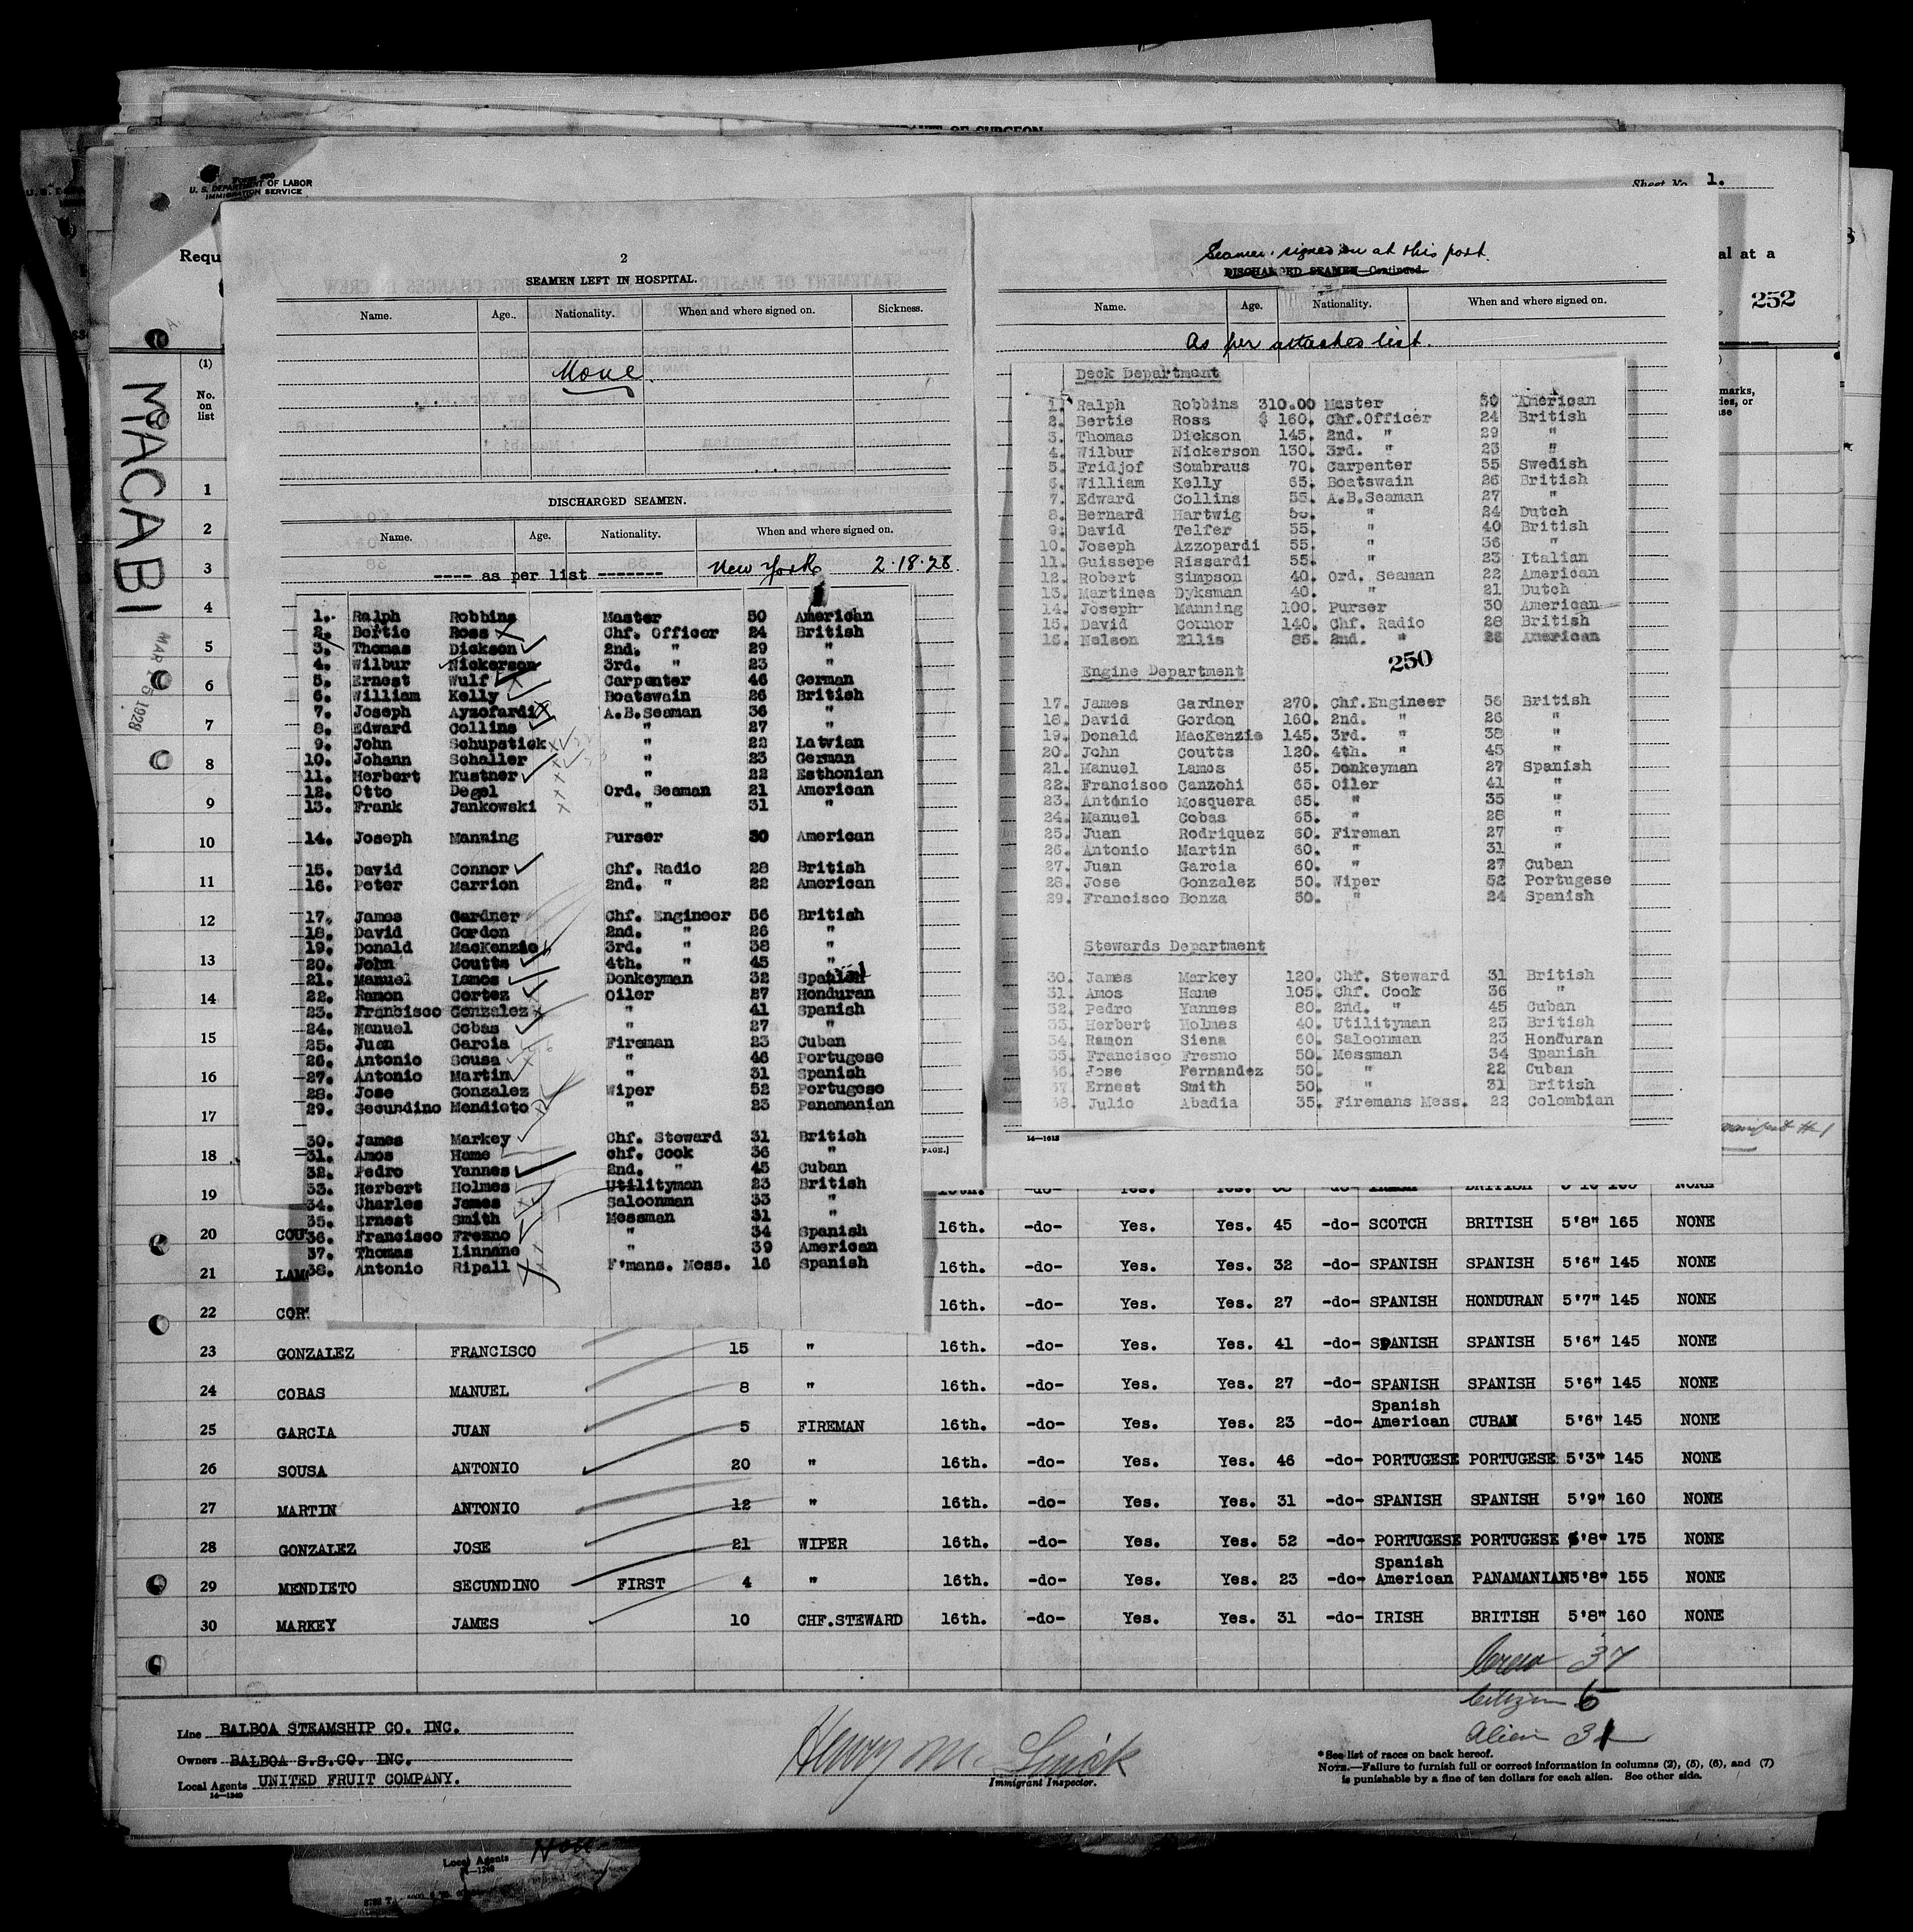 U. S. DEPARTMENT OF LABOR
IMMIGRATION SERVICE
Sheet No. 1.
Requ
al at a
252
(1)
No.
on
list
MACABI
MAR 5 1928
2
SEAMEN LEFT IN HOSPITAL.
Name. Age. Nationality. When and where signed on. Sickness.
None.
DISCHARGED SEAMEN.
Name. Age. Nationality. When and where signed on.
---- as per list ------- New York 2-18-28.
1. Ralph Robbins Master 50 American
2. Bertie Ross Chf. Officer 24 British
3. Thomas Dickson 2nd. " 29 "
4. Wilbur Nickerson 3rd. " 23 "
5. Ernest Wulf Carpenter 46 German
6. William Kelly Boatswain 26 British
7. Joseph Ayzofardi A.B.Seaman 36 "
8. Edward Collins " 27 "
9. John Schupstick " 22 Latvian
10. Johann Schaller " 23 German
11. Herbert Kustner " 22 Esthonian
12. Otto Degel Ord. Seaman 21 American
13. Frank Jankowski " 31 "
14. Joseph Manning Purser 30 American
15. David Connor Chf. Radio 28 British
16. Peter Carrion 2nd. " 22 American
17. James Gardner Chf. Engineer 56 British
18. David Gordon 2nd. " 26 "
19. Donald MacKenzie 3rd. " 38 "
20. John Coutts 4th. " 45 "
21. Manuel Lamos Donkeyman 32 Spanish
22. Ramon Cortez Oiler 27 Honduran
23. Francisco Gonzalez " 41 Spanish
24. Manuel Cobas " 27 "
25. Juan Garcia Fireman 23 Cuban
26. Antonio Sousa " 46 Portugese
27. Antonio Martin " 31 Spanish
28. Jose Gonzalez Wiper 52 Portugese
29. Secundino Mendieto " 23 Panamanian
30. James Markey Chf. Steward 31 British
31. Amos Hame chf. Cook 36 "
32. Pedro Yannes 2nd. " 45 Cuban
33. Herbert Holmes Utilityman 23 British
34. Charles James Saloonman 33 "
35. Ernest Smith Messman 31 "
36. Francisco Fresno " 34 Spanish
37. Thomas Linnane " 39 American
38. Antonio Ripall F'mans. Mess. 16 Spanish
Seamen signed on at this port.
DISCHARGED SEAMEN—Continued.
Name. Age. Nationality. When and where signed on.
As per attached list.
Deck Department
1. Ralph Robbins 310.00 Master 50 American
2. Bertie Ross $ 160. Chf.Officer 24 British
3. Thomas Dickson 145. 2nd. " 29 "
4. Wilbur Nickerson 130. 3rd. " 23 "
5. Fridjof Sombraus 70. Carpenter 55 Swedish
6. William Kelly 65. Boatswain 26 British
7. Edward Collins 55. A.B.Seaman 27 "
8. Bernard Hartwig 55. " 24 Dutch
9. David Telfer 55. " 40 British
10. Joseph Azzopardi 55. " 36 "
11. Guissepe Rissardi 55. " 23 Italian
12. Robert Simpson 40. Ord. Seaman 22 American
13. Martines Dyksman 40. " 21 Dutch
14. Joseph Manning 100. Purser 30 American
15. David Connor 140. Chf. Radio 28 British
16. Nelson Ellis 85. 2nd. " 25 American
250
Engine Department
17. James Gardner 270. Chf.Engineer 56 British
18. David Gordon 160. 2nd. " 26 "
19. Donald MacKenzie 145. 3rd. " 38 "
20. John Coutts 120. 4th. " 45 "
21. Manuel Lamos 65. Donkeyman 27 Spanish
22. Francisco Canzohi 65. Oiler 41 "
23. Antonio Mosquera 65. " 35 "
24. Manuel Cobas 65. " 28 "
25. Juan Rodriquez 60. Fireman 27 "
26. Antonio Martin 60. " 31 "
27. Juan Garcia 60. " 27 Cuban
28. Jose Gonzalez 50. Wiper 52 Portugese
29. Francisco Bonza 50. " 24 Spanish
Stewards Department
30. James Markey 120. Chf. Steward 31 British
31. Amos Hame 105. Chf. Cook 36 "
32. Pedro Yannes 80. 2nd. " 45 Cuban
33. Herbert Holmes 40. Utilityman 23 British
34. Ramon Siena 60. Saloonman 23 Honduran
35. Francisco Fresno 50. Messman 34 Spanish
36. Jose Fernandez 50. " 22 Cuban
37. Ernest Smith 50. " 31 British
38. Julio Abadia 35. Firemans Mess. 22 Colombian
14—1613
1
2
3
4
5
6
7
8
9
10
11
12
13
14
15
16
17
18
19
20 COU 16th. -do- Yes. Yes. 45 -do- SCOTCH BRITISH 5'8" 165 NONE
21 LAM 16th. -do- Yes. Yes. 32 -do- SPANISH SPANISH 5'6" 145 NONE
22 COR 16th. -do- Yes. Yes. 27 -do- SPANISH HONDURAN 5'7" 145 NONE
23 GONZALEZ FRANCISCO 15 " 16th. -do- Yes. Yes. 41 -do- SPANISH SPANISH 5'6" 145 NONE
24 COBAS MANUEL 8 " 16th. -do- Yes. Yes. 27 -do- SPANISH SPANISH 5'6" 145 NONE
25 GARCIA JUAN 5 FIREMAN 16th. -do- Yes. Yes. 23 -do- Spanish American CUBAN 5'6" 145 NONE
26 SOUSA ANTONIO 20 " 16th. -do- Yes. Yes. 46 -do- PORTUGESE PORTUGESE 5'3" 145 NONE
27 MARTIN ANTONIO 12 " 16th. -do- Yes. Yes. 31 -do- SPANISH SPANISH 5'9" 160 NONE
28 GONZALEZ JOSE 21 WIPER 16th. -do- Yes. Yes. 52 -do- PORTUGESE PORTUGESE 5'8" 175 NONE
29 MENDIETO SECUNDINO FIRST 4 " 16th. -do- Yes. Yes. 23 -do- Spanish American PANAMANIAN 5'8" 155 NONE
30 MARKEY JAMES 10 CHF.STEWARD 16th. -do- Yes. Yes. 31 -do- IRISH BRITISH 5'8" 160 NONE
Crew 37
Citizen 6
Alien 31
Line BALBOA STEAMSHIP CO. INC.
Owners BALBOA S.S.CO. INC.
Local Agents UNITED FRUIT COMPANY.
14—1240
Henry M.
Immigrant Inspector.
*See list of races on back hereof.
NOTE.—Failure to furnish full or correct information in columns (2), (5), (6), and (7)
is punishable by a fine of ten dollars for each alien. See other side.
Local Agents
14—1240